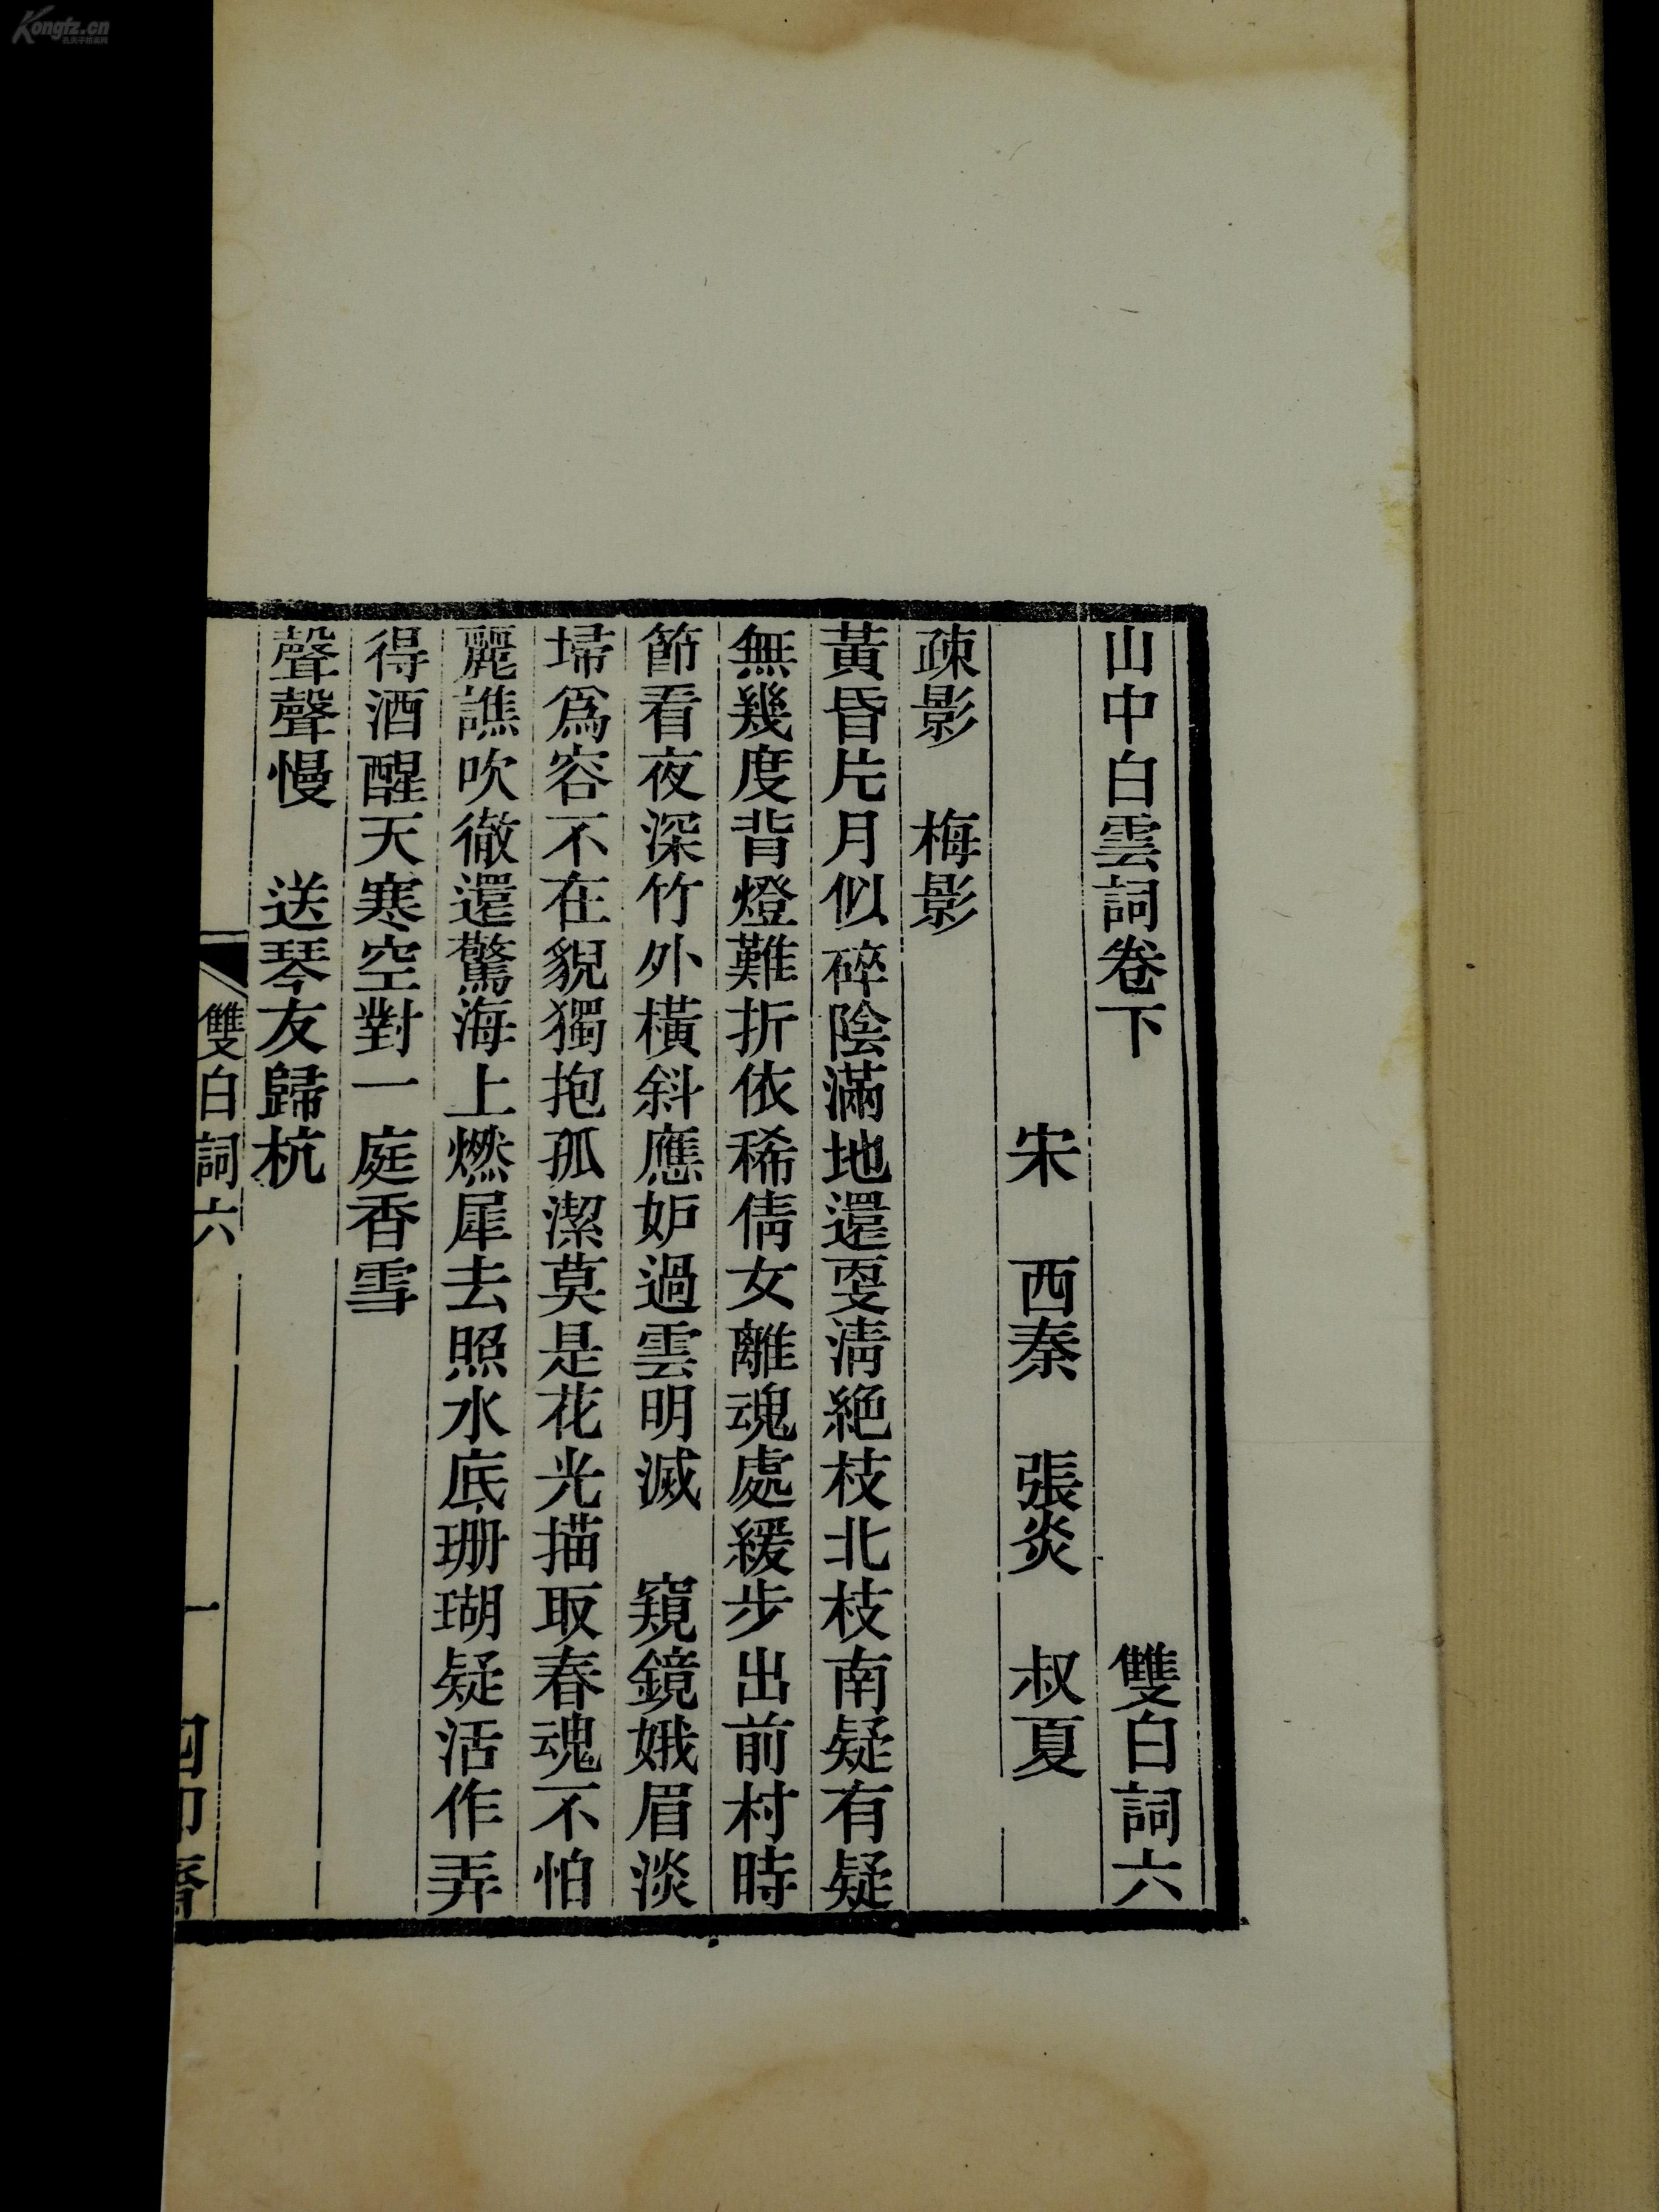 山中白雲詞卷下　雙白詞六
宋　西秦　張炎　叔夏
疎影　梅影
黃昏片月似碎陰滿地還更淸絶枝北枝南疑有疑
無幾度背燈難折依稀倩女離魂處緩步出前村時
節看夜深竹外橫斜應妒過雲明滅　窺鏡娥眉淡
埽爲容不在貎獨抱孤潔莫是花光描取春魂不怕
麗譙吹徹還驚海上燃犀去照水底珊瑚疑活作弄
得酒醒天寒空對一庭香雪
聲聲慢　送琴友歸杭
雙白詞六　一　四印齋
Kongfz.cn
孔夫子旧书网